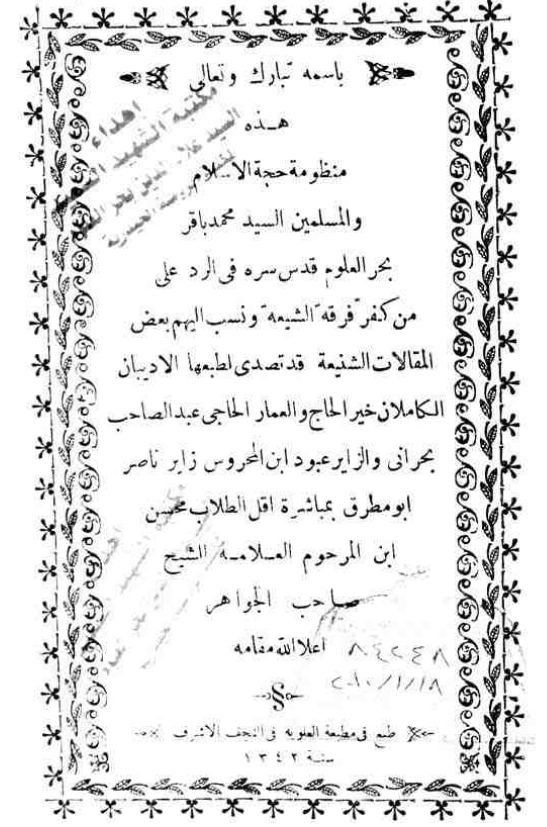 باسمه تبارك وتعالى
هــذه
منظومة حجة الاسلام
والمسلمين السيد محمد باقر
بحر العلوم قدس سره فى الرد على
من كفر فرقة الشيعة ونسب اليهم بعض
المقالات الشنيعة قد تصدى لطبعها الاديبان
الكاملان خير الحاج والعمار الحاجى عبد الصاحب
بحرانى والزاير عبود ابن المحروس زاير ناصر
ابو مطرق بمباشرة اقل الطلاب محسن
ابن المرحوم العــلامــة الشيخ
صاحب الجواهر
اعلا الله مقامه
طبع فى مطبعة العلويه فى النجف الاشرف
سنة ١٣٤٢
اهداء
مكتبة الشهيد
السيد علاء الدين بحر
٨٤٢٤٨
٢٠١٠/١/١٨